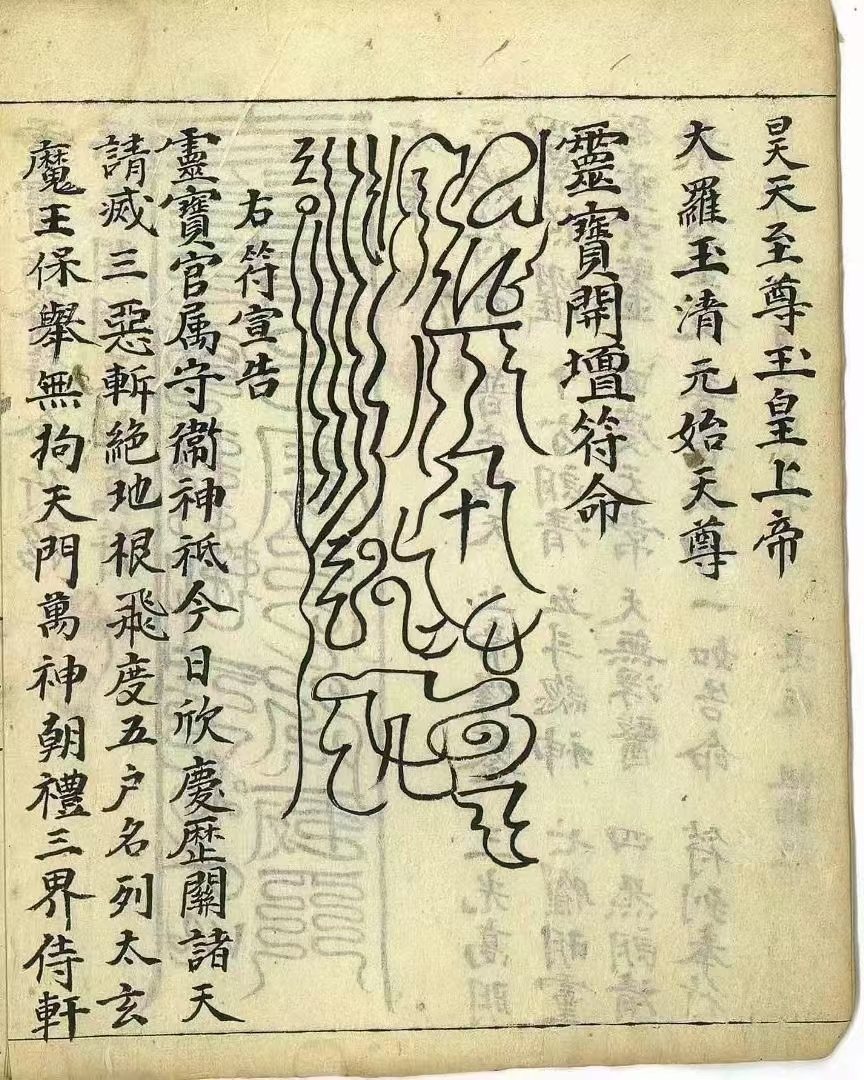 昊天至尊玉皇上帝
大羅玉清元始天尊
靈寶開壇符命
右符宣告
靈寶官属守衞神祗今日欣慶歷關諸天
請滅三惡斬絕地根飛度五户名列太玄
魔王保舉無拘天門萬神朝禮三界侍軒